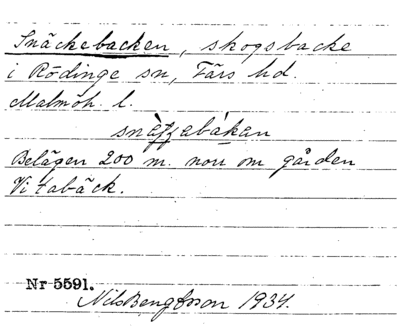 Snäckebacken, skogsbacke
i Rödinge sn, Färs hd.
Malmöh. l.
Belägen 200 m. norr om gården
Vitabäck.
Nr 5591.
Nils Bengtsson 1934.